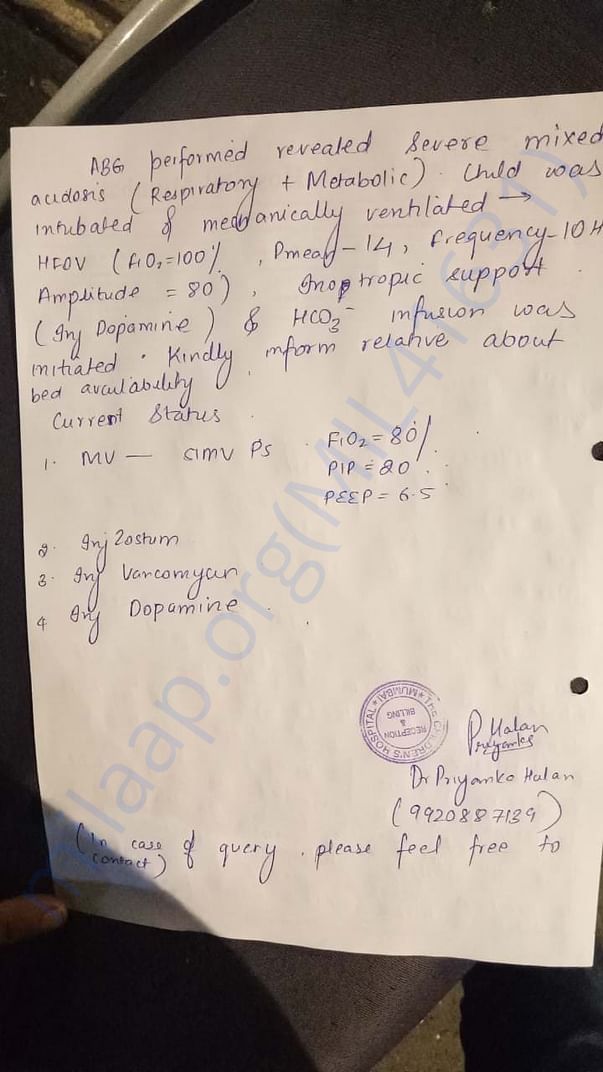 ABG performed revealed severe mixed
acidosis (Respiratory + Metabolic). Child was
intubated & mechanically ventilated →
HFOV (FiO2=100%, Pmean-14, frequency-10H
Amplitude = 80), Inoptropic support
(Inj Dopamine) & HCO3- infusion was
initiated. Kindly inform relative about
bed availability.
Current Status.
1. MV — SIMV PS FiO2 = 80%.
PIP = 20.
PEEP = 6.5
2. Inj Zostum
3. Inj Vancomycin
4 Inj Dopamine.
THE CHILDREN'S HOSPITAL * MUMBAI *
RECEPTION
&
BILLING
PHalan
Priyanka
Dr Priyanka Halan
(9920887139)
(In case of query, please feel free to
contact)
milaap.org(MIL41631)